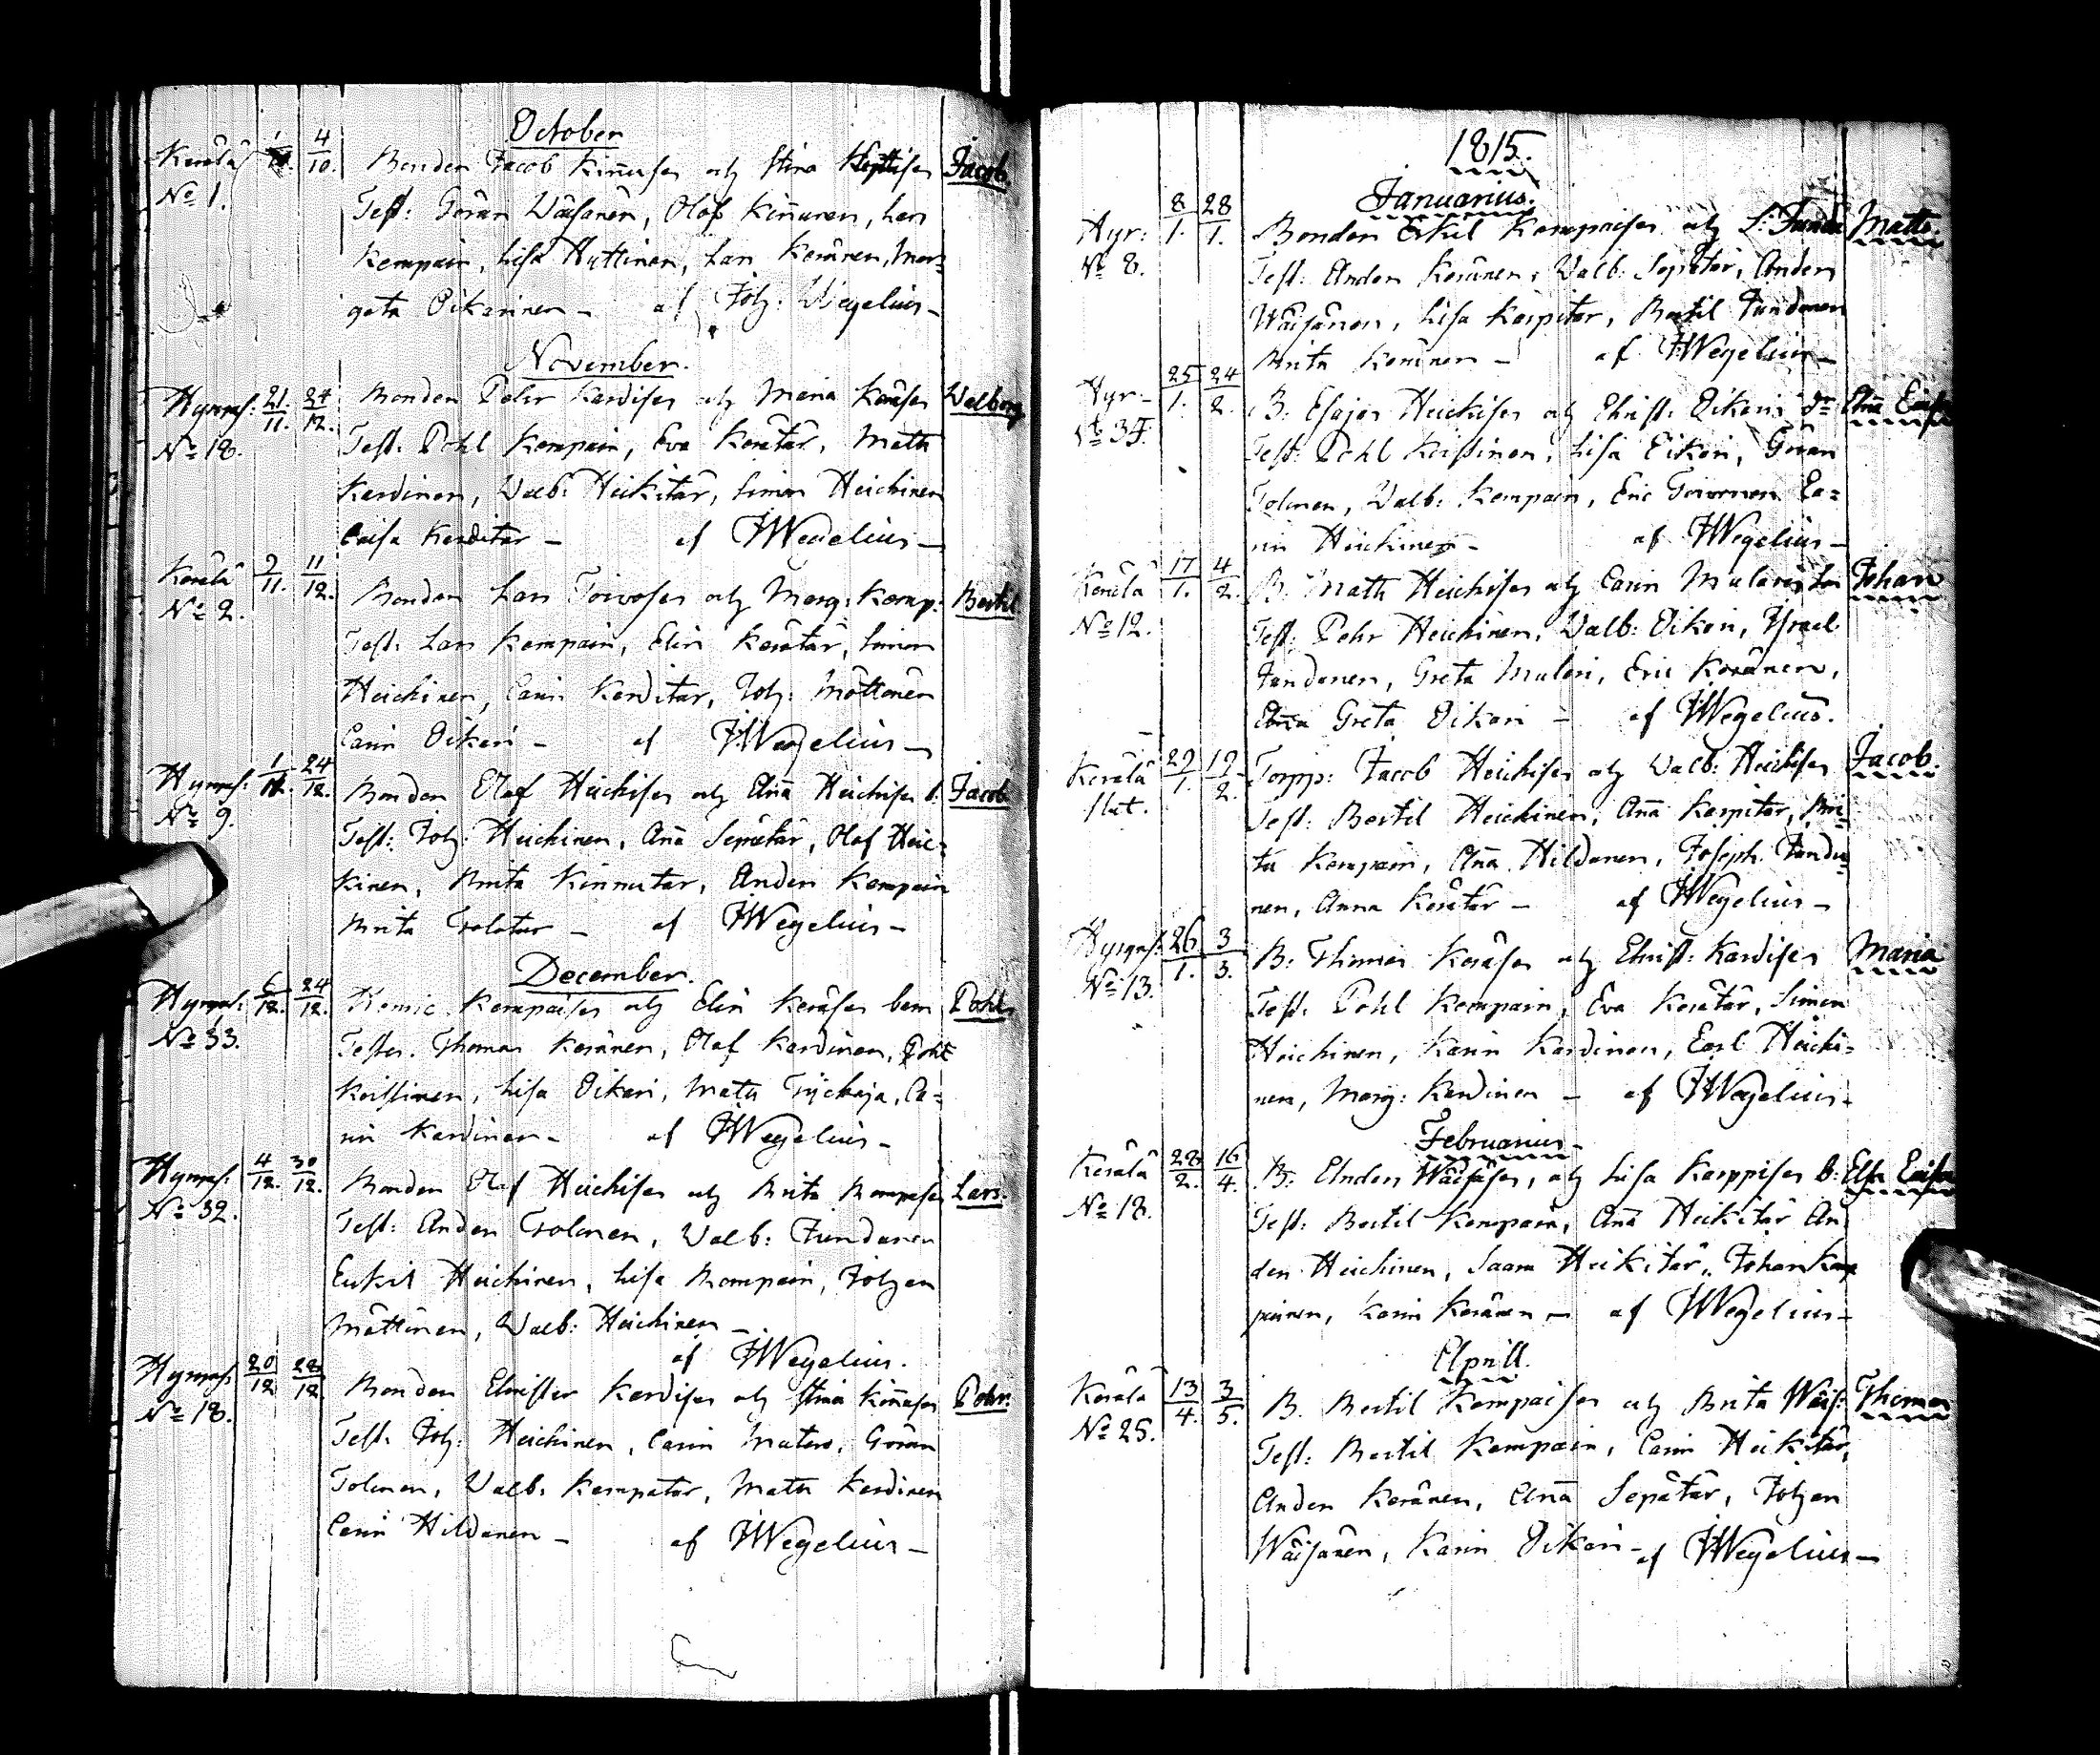 October
Kerälä 4/10. Bonden Jacob Kiñuses och Stina Jacob.
No 1. Test: Göran Wäisänen, Olof Kiñunen, Lars
Kempain, Lisa Huttinen, Lars Keränen, Mar-
geta Oikarinen – af Joh: Wegelius –
November.
Hyrynss: 21/11. 24/12. Bonden Pehr Kardises och Maria Walborg
No 18. Test. Pohl Kempain, Eva Kerätär, Matts
Kardinen, Walb: Heikitär, Simon Heickinen
Caisa Karditar – af JWegelius –
Kerälä 9/11. 11/12. Bonden Lars Toivoses och Marg: Kemp: Bertil
No 2. Test: Lars Kempain, Elin Kerätär, Simon
Heickinen, Carin Karditar, Joh: Möttönen
Carin Oikari – af JWegelius –
Hyrynss: 24/12. Bonden Olof Heickises och Aña Heickises Jacob
No 9. Test: Joh: Heickinen, Aña Sepätär, Olof Heic-
kinen, Brita Kinnutar, Anders Kempain
Brita Tolatar – af JWegelius –
December.
Hyrynss: 6/12. 24/12. Kempaises och Elin Keräses barn Pohl
No 33. Testes. Thomas Keränen, Olof Kardinen, Pohl
Keissinen, Lisa Oikari, Matts Tyckäjä, Ca-
rin Kardinen – af JWegelius –
Hyrynss: 4/12. 30/12. Bonden Olof Heickises och Brita Lars.
No 32. Test: Anders Tolonen, Walb: Jundanen
Eskil Heickinen, Lisa Kompain, Johan
Möttönen, Walb: Heickinen –
af JWegelius.
Hyrynss: 20/12 28/12. Bonden Christer Kardises och Stina Kiñuses Pehr.
No 18. Test. Joh: Heickinen, Carin Matero, Göran
Tolonen, Walb: Kempatar, Matts Kardinen
Carin Hildanen – af JWegelius –
1815.
Januarius.
Hyr: 8/1. 28/1. Bonden Eskil Kempaises och L: Matts.
No 8. Test: Anders Keränen, Walb: Sepätär, Anders
Wäisänen, Lisa Karpitar, Bertil Jundanen
Brita Keränen – af JWegelius –
Hyr– 25/1. 24/2. B: Esajas Heickises och Christ: Oikaris dr Aña Caisa
No 35. Test: Pohl Keissinen, Lisa Oikari, Göran
Tolonen, Walb: Kempain, Eric Toivonen Ca-
rin Heickinen – af JWegelius –
Kerälä 17/1. 4/2. B: Matts Heickises och Carin Mularis Johan
No 12. Test: Pehr Heickinen, Walb: Oikari, Ysrael
Jundanen, Greta Mulari, Eric Keränen,
Greta Oikari – af JWegelius.
Kerälä 29/1. 19/2. Torpp: Jacob Heickises och Walb: Heickises Jacob.
Test: Bertil Heickinen, Aña Karpitar, Bri-
ta Kempain, Aña Hildanen, Joseph Junda-
nen, Anna Kerätär – af JWegelius –
Hyrynss: 26/1. 3/3. B: Thomas Keräses och Christ: Kardises Maria
No 13. Test. Pohl Kempain, Eva Kerätär, Simon
Heickinen, Karin Kardinen, Carl Heicki-
nen, Marg: Kardinen – af JWegelius –
Februarius –
Kerälä 28/2. 16/4. B: Anders Wäisäses, och Lisa Karppises D: Elsa Caisa
No 18. Test: Bertil Kempain, Aña Heikitär An
ders Heickinen, Saara Heikitär, Johan Kem
painen, Karin Keränen – af JWegelius –
Aprill.
Kerälä 13/4. 3/5. B. Bertil Kempaises och Brita Wäis: Thomas
No 25. Test: Bertil Kempain, Carin Heikitär,
Anders Keränen, Aña Sepätär, Johan
Wäisänen, Karin Oikari – af JWegelius –